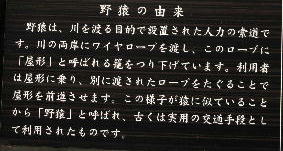 野猿の由来
野猿は、川を渡る目的で設置された人力の索道で
す。川の両岸にワイヤロープを渡し、このロープに
「屋形」と呼ばれる籠をつり下げています。利用者
は屋形に乗り、別に渡されたロープをたぐることで
屋形を前進させます。この様子が猿に似ていること
から「野猿」と呼ばれ、古くは実用の交通手段とし
て利用されたものです。